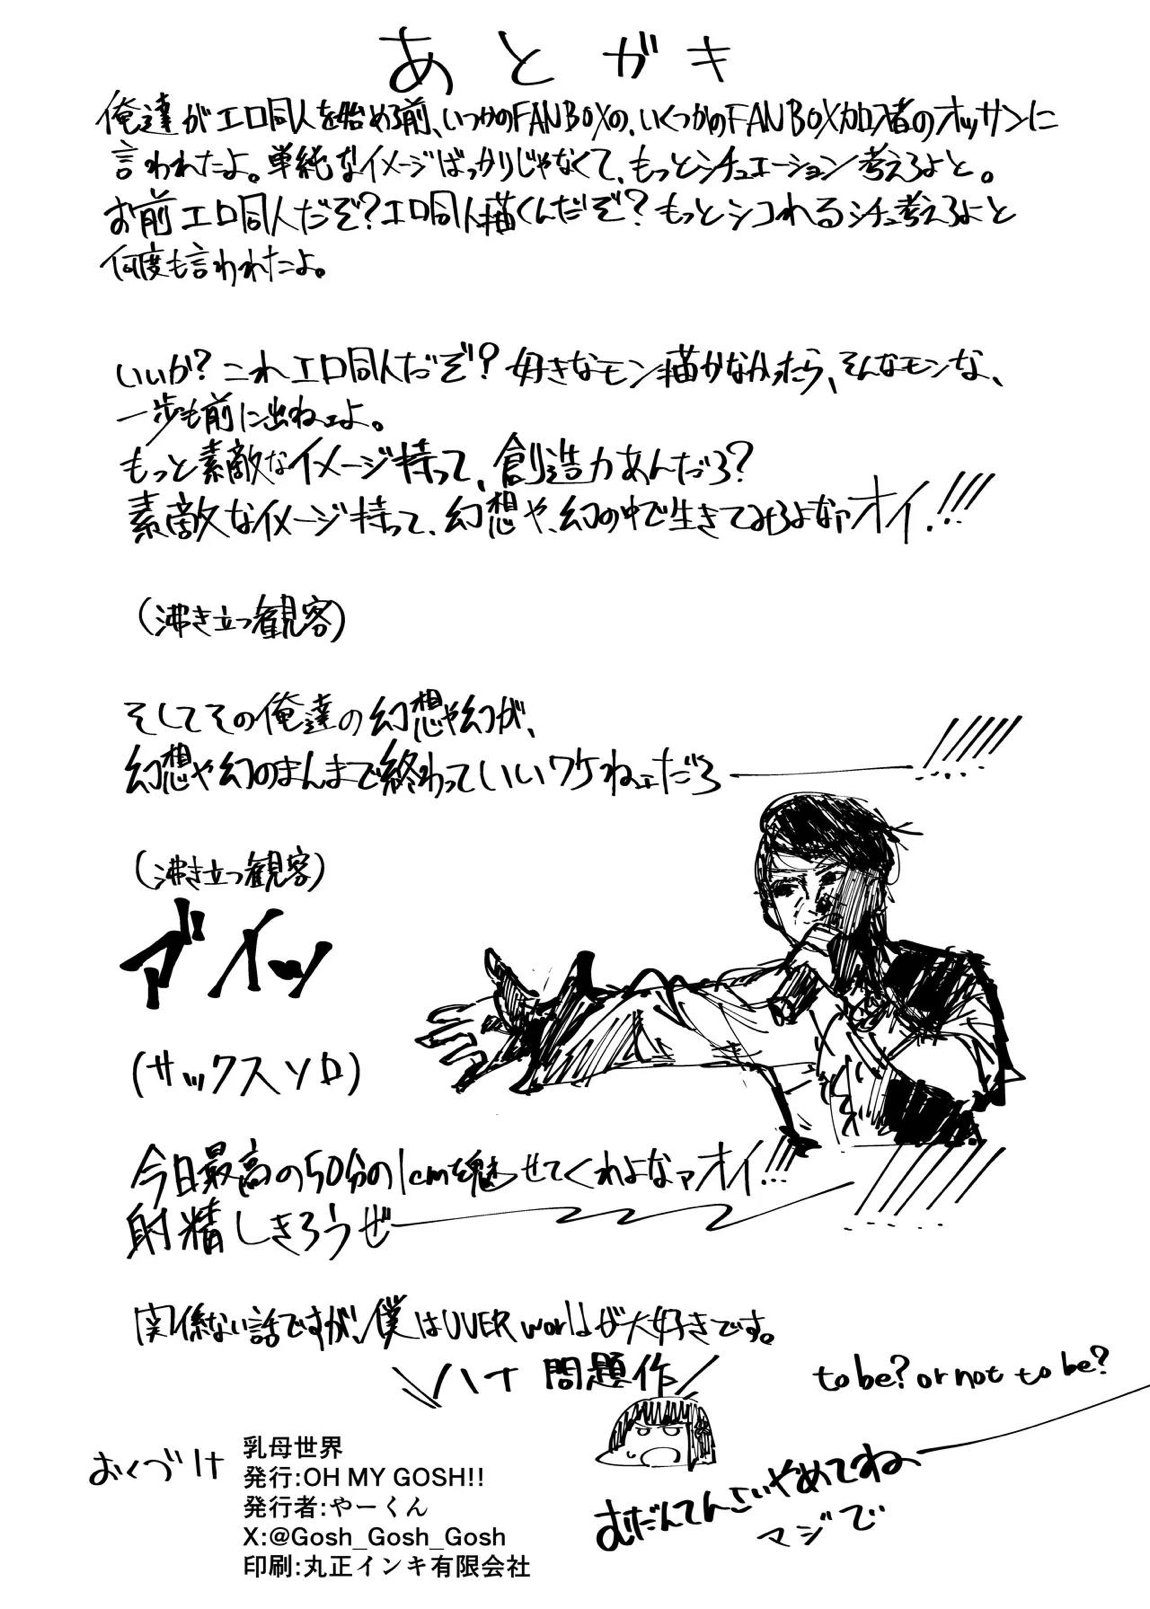 あとガキ
俺達がエロ同人を始める前、いつかのFANBOXの、いくつかのFANBOX加入者のオッサンに
言われたよ。単純なイメージばっかりじゃなくて、もっとシチュエーション考えろよと。
お前エロ同人だぞ?エロ同人描くんだぞ?もっとシコれるシチュ考えろよと
何度も言われたよ。
いいか?これエロ同人だぞ?好きなモン描かなかったら、そんなモンな、
一歩も前に出ねェよ。
もっと素敵なイメージ持って、創造力あんだろ?
素敵なイメージ持って、幻想や、幻の中で生きてみろよなァオイ!!!
(沸き立つ観客)
そしてその俺達の幻想や幻が、
幻想や幻のまんまで終わっていいワケねェだろ――!!!!!
(沸き立つ観客)
アイッ
(サックスソロ)
今日最高の50分の1cmを魅せてくれよなァオイ!!!
射精しきろうぜ――!!!!
関係ない話ですが、僕はUVERworldが大好きです。
\\ハナ問題作/
to be? or not to be?
おくづけ
乳母世界
発行:OH MY GOSH!!
発行者:やーくん
X:@Gosh_Gosh_Gosh
印刷:丸正インキ有限会社
むだんてんさいやめてねー
マジで